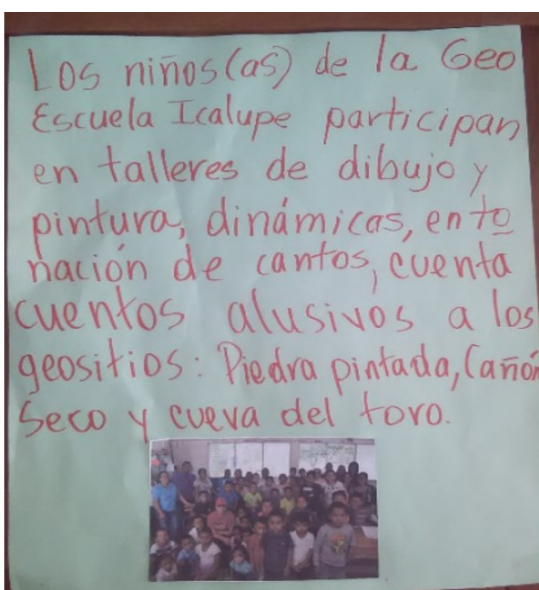 Los niños(as) de la Geo
Escuela Icalupe participan
en talleres de dibujo y
pintura, dinámicas, ento
nación de cantos, cuenta
cuentos alusivos a los
geositios: Piedra pintada, Cañón
Seco y cueva del toro.